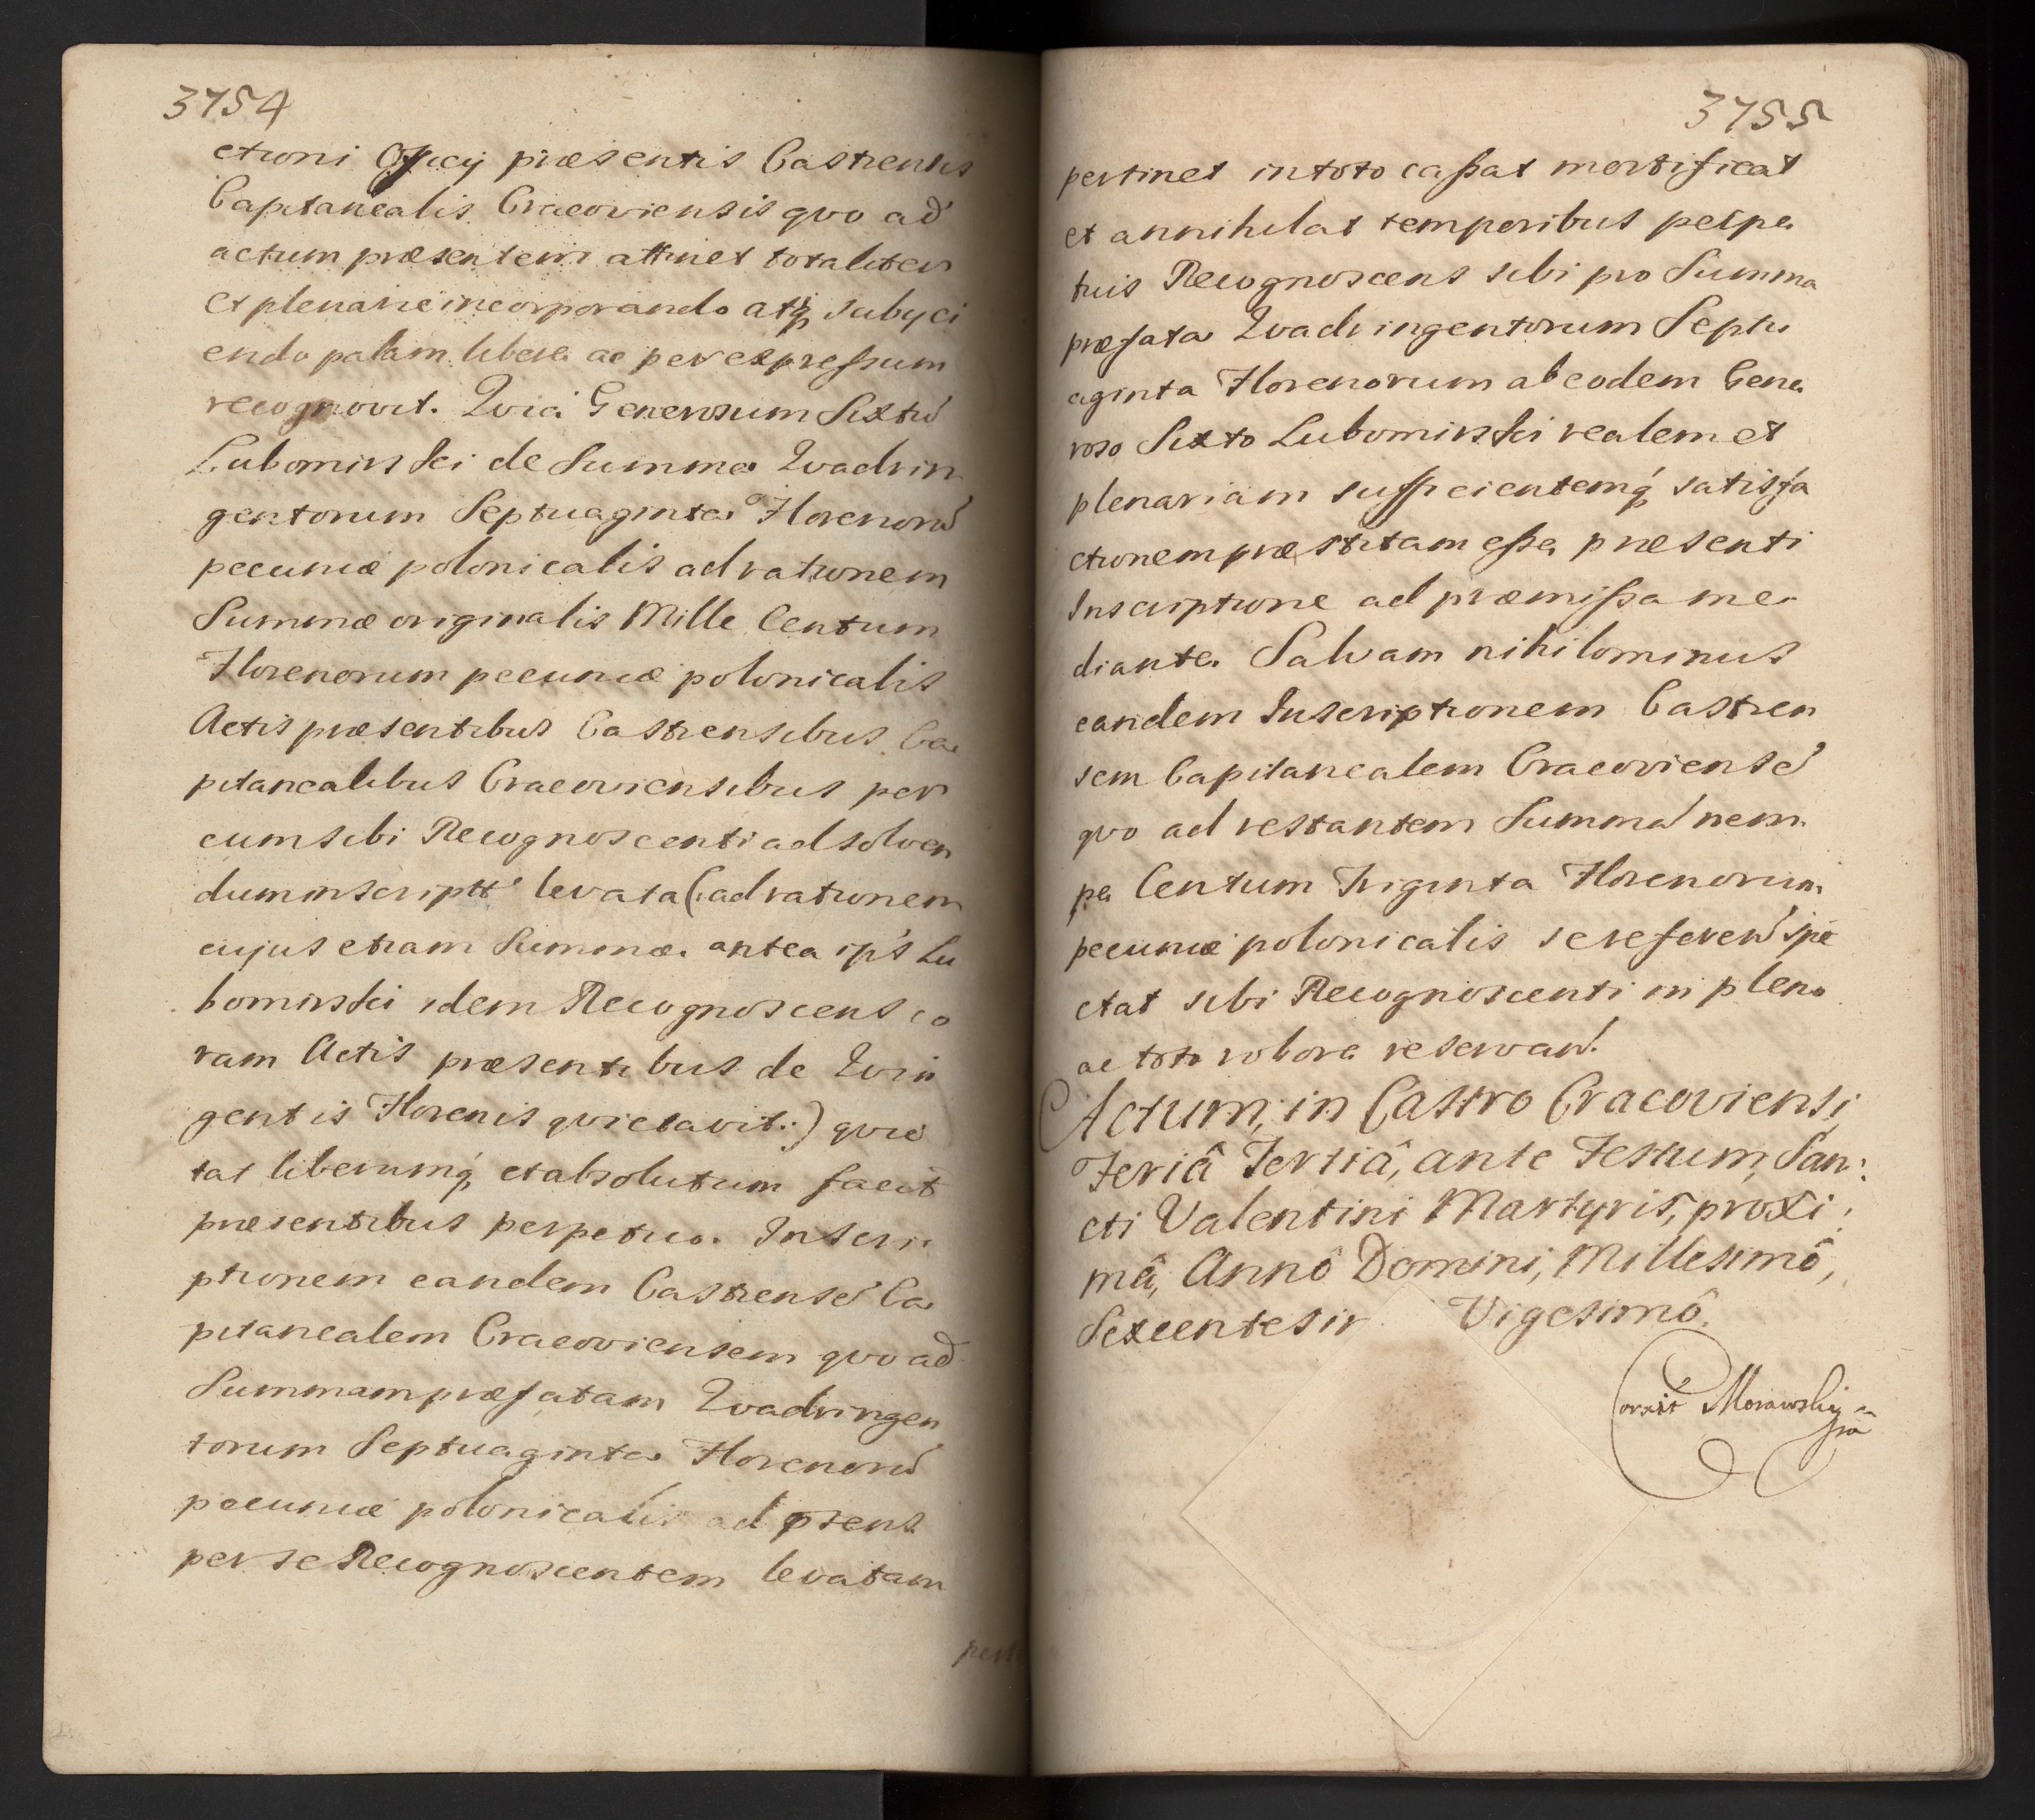 3754
ctioni Officij præsentis Castrensis
Capitanealis Cracoviensis qvo ad
actum præsentem attinet totaliter
et plenarie incorporando atq̃ subyci
endo palam libere ac per expressum
recognovit. Qvia Generosum Sixtũ
Lubomirski de Summa Qvadrin
gentorum Septuaginta Florenorũ
pecuniæ polonicalis ad rationem
Summæ originalis Mille Centum
Florenorum pecuniæ polonicalis
Actis præsentibus Castrensibus Ca
pitanealibus Cracoviensibus per
eum sibi Recognoscenti ad solven
dum inscriptt levata (:ad rationem
cujus etiam Summæ antea ips Lu
bomirski idem Recognoscens co
ram Actis præsentibus de Qvin
gentis Florenis qvietavit:) qvie
tat liberumq̃ et absolutum facit
præsentibus perpetuo. Inscri
ptionem eandem Castrensẽ Ca
pitanealem Cracoviensem qvo ad
Summam præfatam Qvadringen
torum Septuaginta Florenorũ
pecuniæ polonicalis ad præns
per se Recognoscentem levatam
3755
pertinet in toto cassat mortificat
et annihilat temporibus perpe
tuis Recognoscens sibi pro Summa
præfata Qvadringentorum Septu
aginta Florenorum ab eodem Gene
roso Sixto Lubomirski realem et
plenariam sufficientemq̃ satisfa
ctionem præstitam esse præsenti
Inscriptione ad præmissa me
diante. Salvam nihilominus
eandem Inscriptionem Castren
sem Capitanealem Cracoviensẽ
qvo ad restantem Summã nem
pe Centum Triginta Florenorum
pecuniæ polonicalis se referen̄ spe
ctat sibi Recognoscenti in pleno
ac toto robore reservan̄.
Actum, in Castro Cracoviensi,
Feriâ Tertiâ, ante Festum, San:
cti Valentini Martyris, proxi:
mâ, Annô Domini, Millesimô,
Sexcentesi Vigesimô.
Corrxit Morawskij